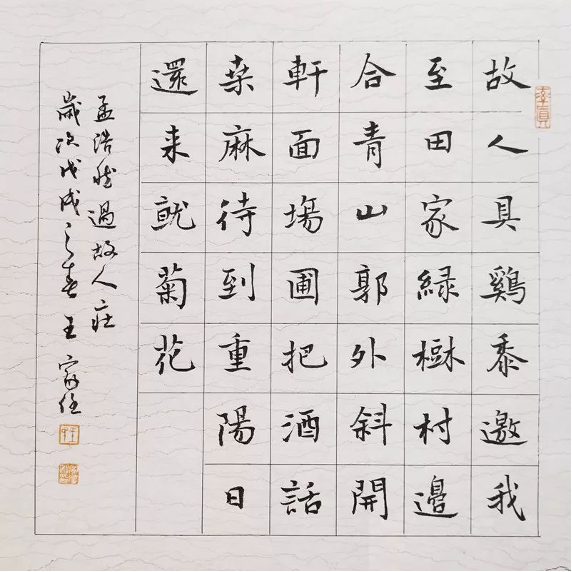 故人具鷄黍邀我
至田家緑樹村邉
合青山郭外斜開
軒面場圃把酒話
桒麻待到重陽日
還来就菊花
孟浩然過故人莊
歲次戊戌之春王家任